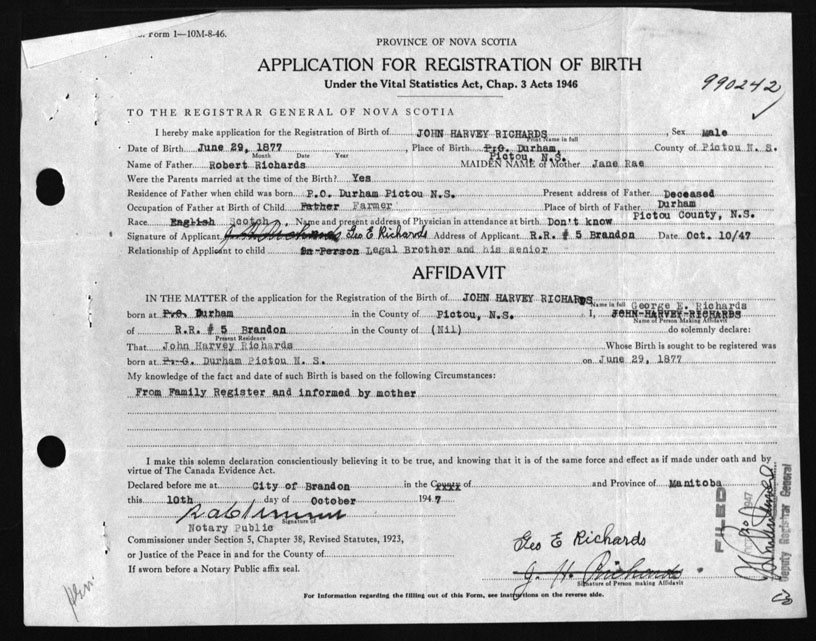 Form 1—10M-8-46.
PROVINCE OF NOVA SCOTIA
APPLICATION FOR REGISTRATION OF BIRTH
Under the Vital Statistics Act, Chap. 3 Acts 1946
990242
TO THE REGISTRAR GENERAL OF NOVA SCOTIA
I hereby make application for the Registration of Birth of JOHN HARVEY RICHARDS, Sex Male
Print Name in full
Date of Birth June 29, 1877, Place of Birth P.O. Durham, County of Pictou N. S.
Month Date Year
Pictou, N.S.
Name of Father Robert Richards MAIDEN NAME of Mother Jane Rae
Were the Parents married at the time of the Birth? Yes
Residence of Father when child was born P.O. Durham Pictou N.S. Present address of Father Deceased
Occupation of Father at Birth of Child Father Farmer Place of birth of Father Durham
Pictou County, N.S.
Race English Scotch Name and present address of Physician in attendance at birth Don't know
Signature of Applicant J. H. Richards Geo E Richards Address of Applicant R.R. # 5 Brandon Date Oct. 10/47
Relationship of Applicant to child In Person Legal Brother and his senior
AFFIDAVIT
IN THE MATTER of the application for the Registration of the Birth of JOHN HARVEY RICHARDS
Name in full George E. Richards
born at P.O. Durham in the County of Pictou, N.S. I, JOHN HARVEY RICHARDS
Name of Person Making Affidavit
of R.R. # 5 Brandon in the County of (Nil) do solemnly declare:
Present Residence
That John Harvey Richards Whose Birth is sought to be registered was
born at P.O. Durham Pictou N. S. on June 29, 1877
My knowledge of the fact and date of such Birth is based on the following Circumstances:
From Family Register and informed by mother
I make this solemn declaration conscientiously believing it to be true, and knowing that it is of the same force and effect as if made under oath and by
virtue of The Canada Evidence Act.
Declared before me at City of Brandon in the County of XXXX and Province of Manitoba
this 10th day of October 1947
Signature of
Notary Public
Commissioner under Section 5, Chapter 38, Revised Statutes, 1923,
or Justice of the Peace in and for the County of
If sworn before a Notary Public affix seal.
Geo E Richards
J. H. Richards
Signature of Person making Affidavit
For Information regarding the filling out of this Form, see instructions on the reverse side.
FILED
1947
Deputy Registrar General